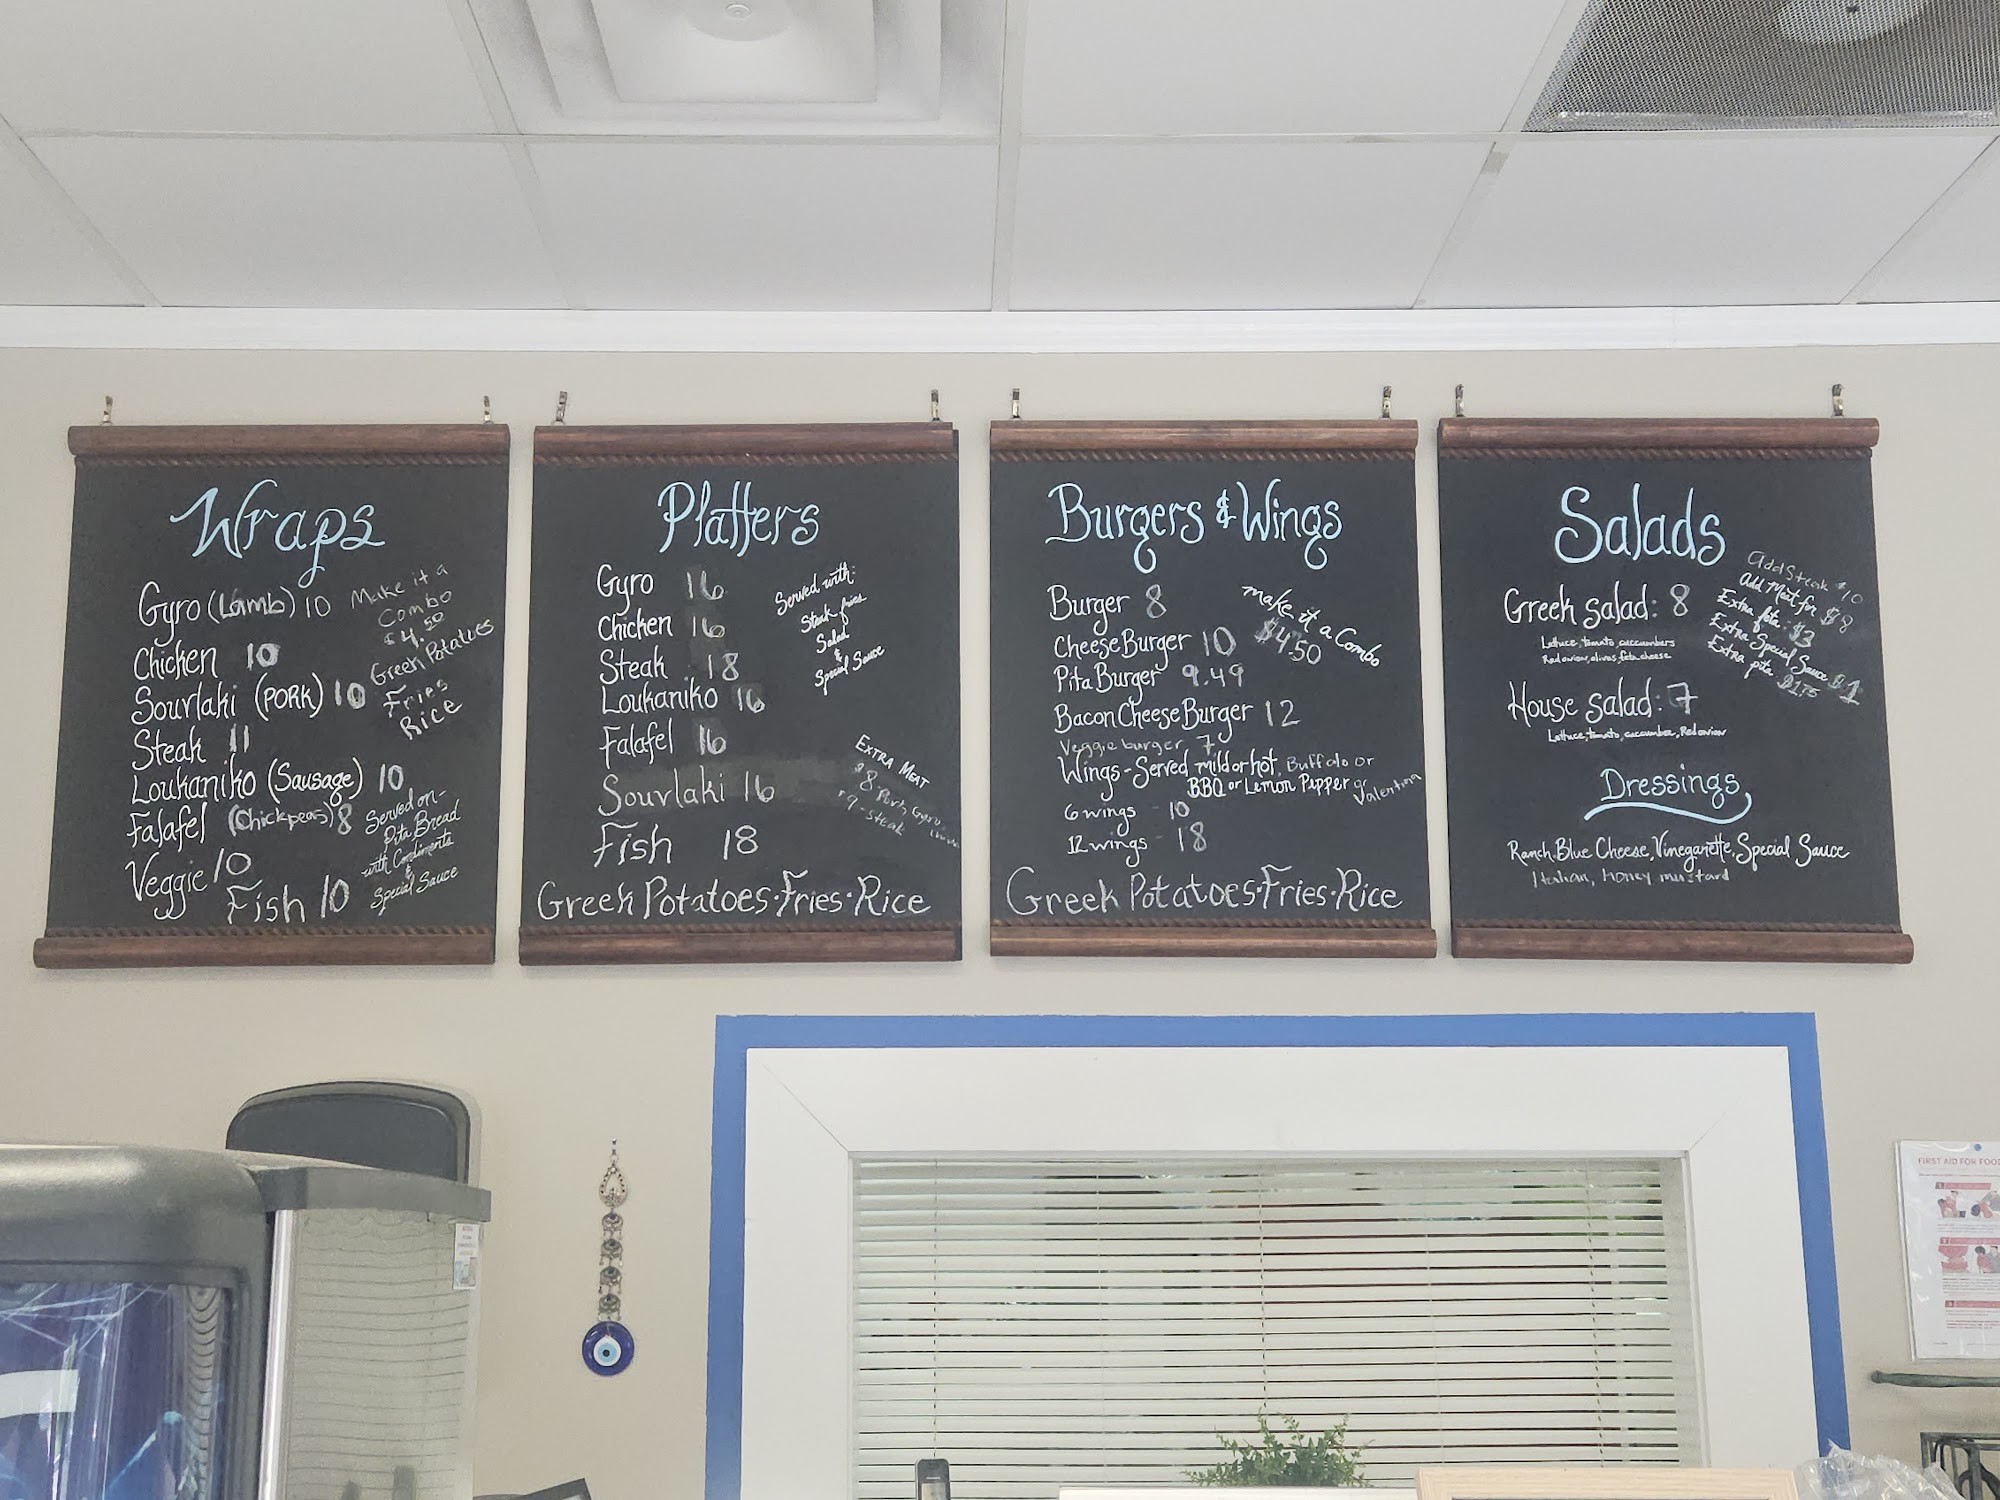 Wraps
Gyro (Lamb) 10
Chicken 10
Sourlaki (PORK) 10
Steak 11
Loukaniko (Sausage) 10
Falafel (Chickpeas) 8
Veggie 10
Fish 10
Make it a
Combo
$4.50
Greek Potatoes
Fries
Rice
Served on-
Pita Bread
with Condiments
&
Special Sauce
Platters
Gyro 16
Chicken 16
Steak 18
Loukaniko 16
Falafel 16
Souvlaki 16
Fish 18
Served with:
Steak fries
Salad
&
Special Sauce
EXTRA MEAT
$8-Pork, Gyro
$9-Steak
Greek Potatoes·Fries·Rice
Burgers & Wings
Burger 8
Cheese Burger 10
Pita Burger 9.49
Bacon Cheese Burger 12
Veggie burger 7
Wings-Served mild or hot, Buffalo or
BBQ or Lemon Pepper or
Valentina
6 wings - 10
12 wings - 18
make it a Combo
$4.50
Greek Potatoes·Fries·Rice
Salads
Greek Salad: 8
Lettuce, tomato, cuccumbers
Red onion, olives, feta cheese
House Salad: 7
Lettuce, tomato, cuccumber, Red onion
Add Steak $10
Add Meat for $8
Extra feta: $3
Extra Special Sauce $1
Extra pita $1.75
Dressings
Ranch, Blue Cheese, Vinegarette, Special Sauce
Italian, honey mustard
FIRST AID FOR FOOD